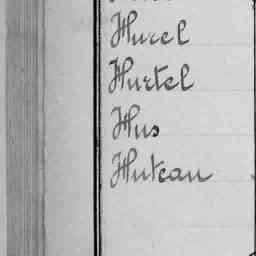 Hurel
Hurtel
Hus
Huteau